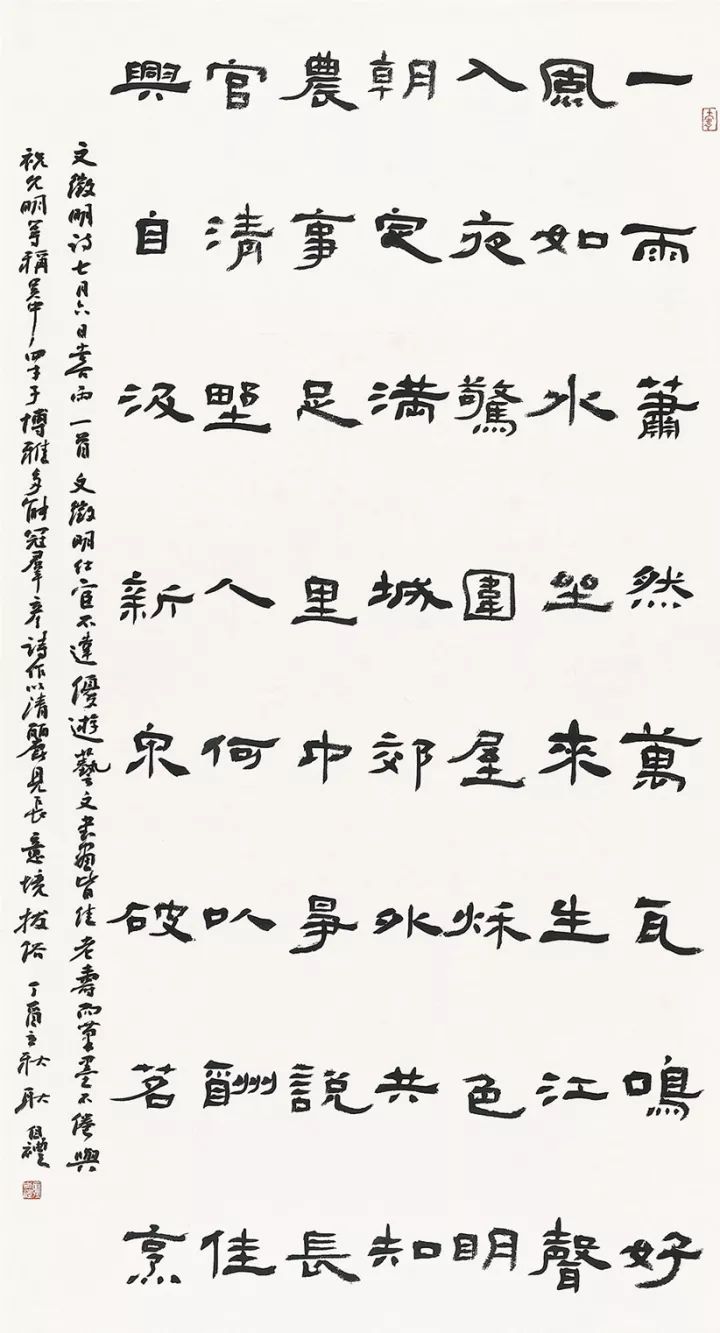 一雨蕭然萬瓦鳴好
風如水坐來生江聲
入夜驚圍屋秋色明
朝定滿城郊外共知
農事足里中爭說長
官清野人何㕥酬佳
興自汲新泉破茗烹
文徵明詩七月六日喜雨一首文徵明仕宦不達優遊藝文書畫皆佳老壽而筆墨不倦與
祝允明等稱吳中四才子博雅多能冠羣彥詩作以清麗見長意境拔俗丁酉立秋耿自禮